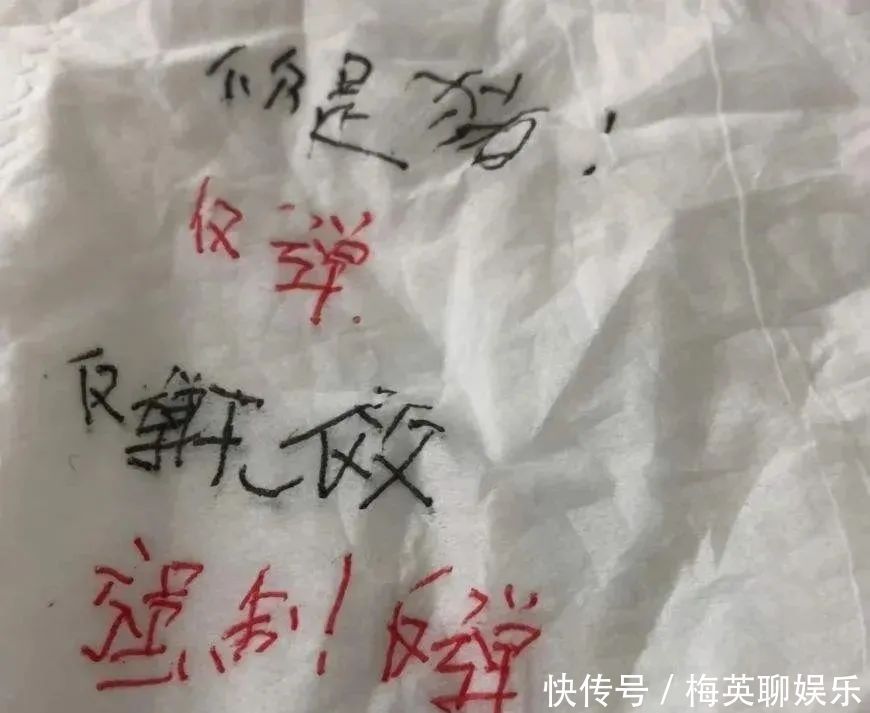 你是猪!
反弹.
反弹无效
强制!反弹
快传号/梅英聊娱乐